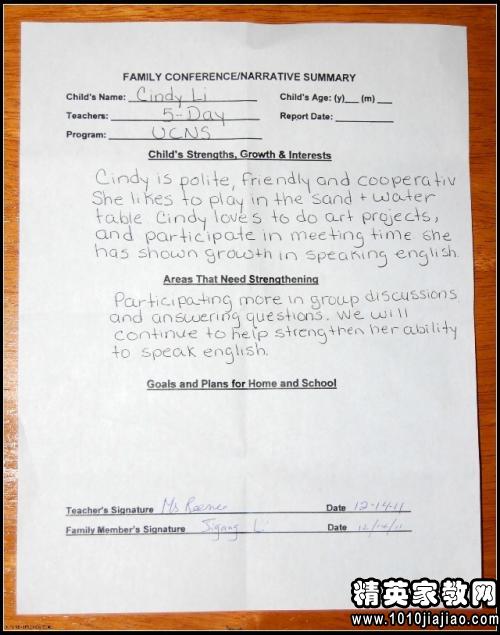 FAMILY CONFERENCE/NARRATIVE SUMMARY
Child's Name: Cindy Li Child's Age: (y)___ (m) ___
Teachers: 5-Day Report Date:
Program: UCNS
Child's Strengths, Growth & Interests
Cindy is polite, friendly and cooperativ
She likes to play in the sand + water
table. Cindy loves to do art projects,
and participate in meeting time. She
has shown growth in speaking english.
Areas That Need Strengthening
Participating more in group discussions
and answering questions. We will
continue to help strengthen her ability
to speak english.
Goals and Plans for Home and School
Teacher's Signature Ms Date 12-14-11
Family Member's Signature Li Date 12/14/11
精英家教网
www.1010jiajiao.com